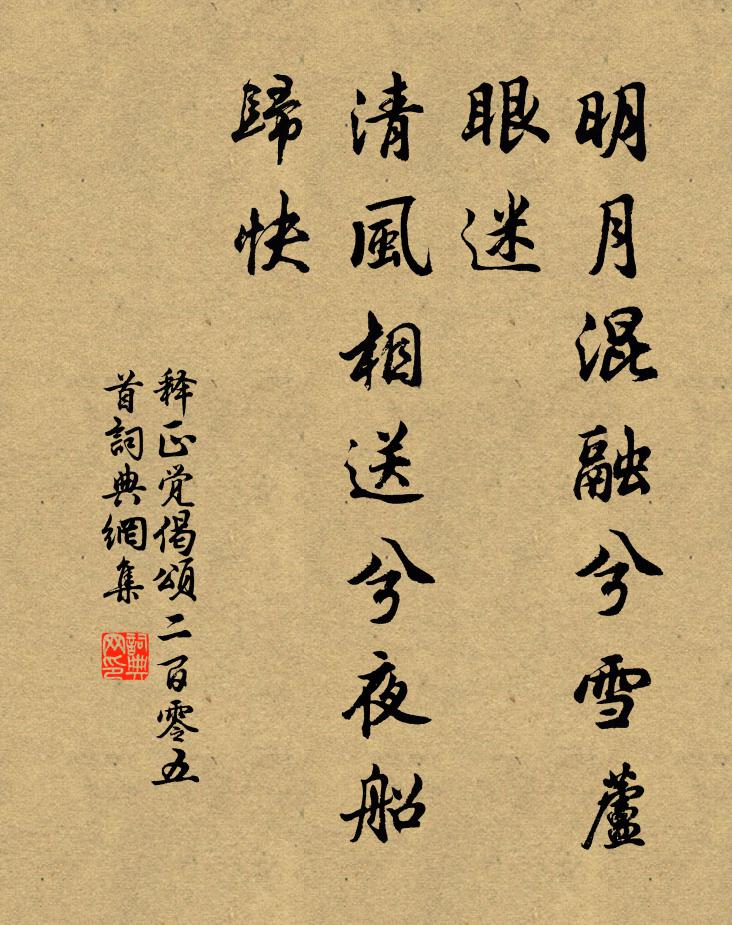 明月混融兮雪蘆
眼迷
清風相送兮夜船
歸快
释正觉偈頌二百零五
首詞典網集
詞典
网印